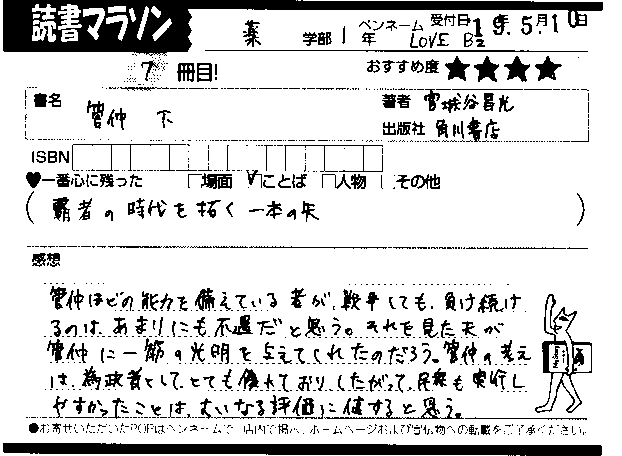 読書マラソン
薬 学部 1 年 ペンネーム LOVE B'z 受付日 19年.5月10日
7 冊目! おすすめ度 ★★★★
書名 管仲 下
著者 宮城谷昌光
出版社 角川書店
ISBN
♥一番心に残った □場面 ☑ことば □人物 □その他
( 覇者の時代を拓く一本の矢 )
感想
管仲ほどの能力を備えている者が、戦争しても、負け続け
るのは、あまりにも不遇だと思う。それを見た天が
管仲に一筋の光明を与えてくれたのだろう。管仲の考え
は、為政者として、とても優れており、したがって、民衆も実行し
やすかったことは、大いなる評価に値すると思う。
●お寄せいただいたPOPはペンネームで、店内で掲示、ホームページおよび宣伝物への転載をご了承ください。